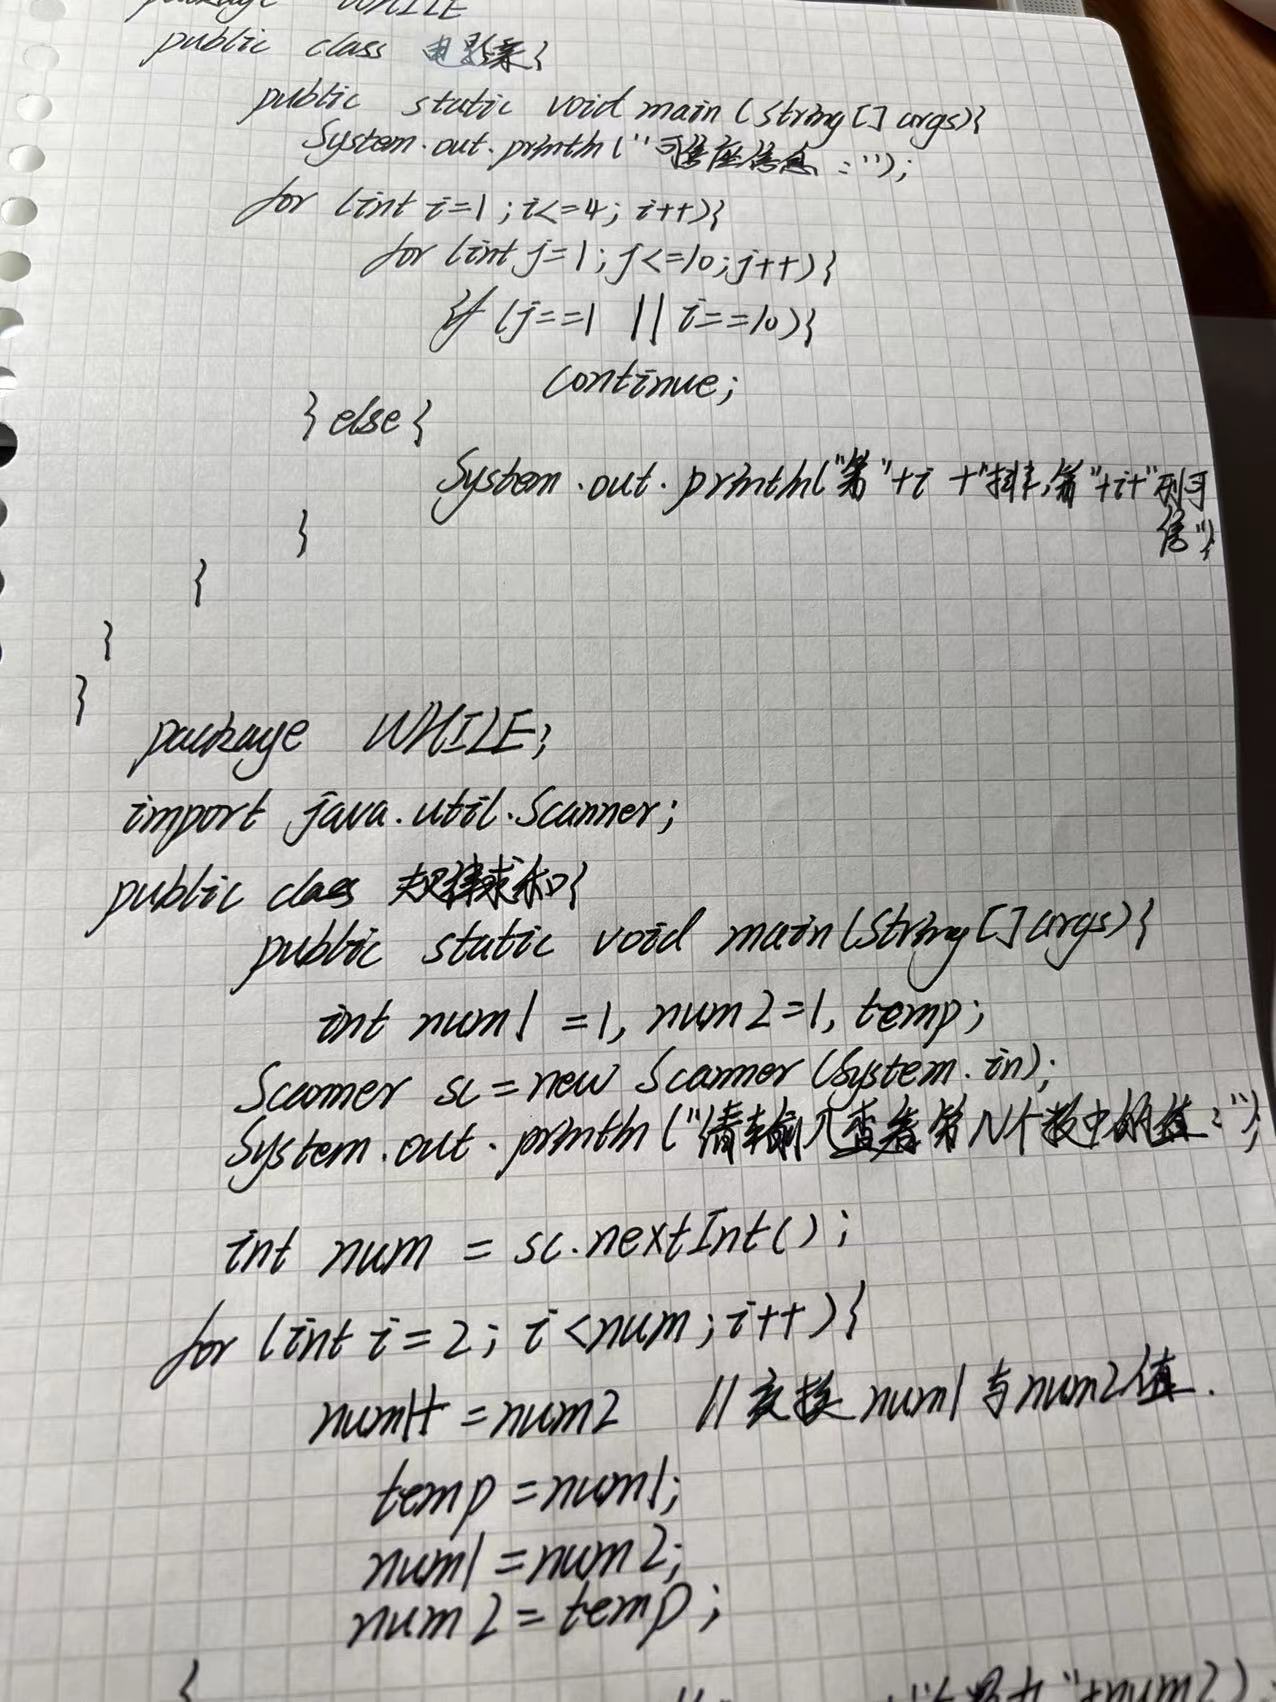 package WHILE
public class 电影票{
public static void main (String[] args){
System.out.println("可售座信息:");
for (int i=1; i<=4; i++){
for (int j=1; j<=10; j++){
if (j==1 || i==10){
continue;
} else {
System.out.println("第"+i+"排,第"+i+"列可
售");
}
}
}
}
package WHILE;
import java.util.Scanner;
public class 规律求和{
public static void main(String[] args){
int num1=1, num2=1, temp;
Scanner sc=new Scanner(System.in);
System.out.println("请输入查看第N个数中的值:");
int num = sc.nextInt();
for (int i=2; i<num; i++){
num1+=num2 //交换num1与num2值.
temp=num1;
num1=num2;
num2=temp;
}
"+num2)